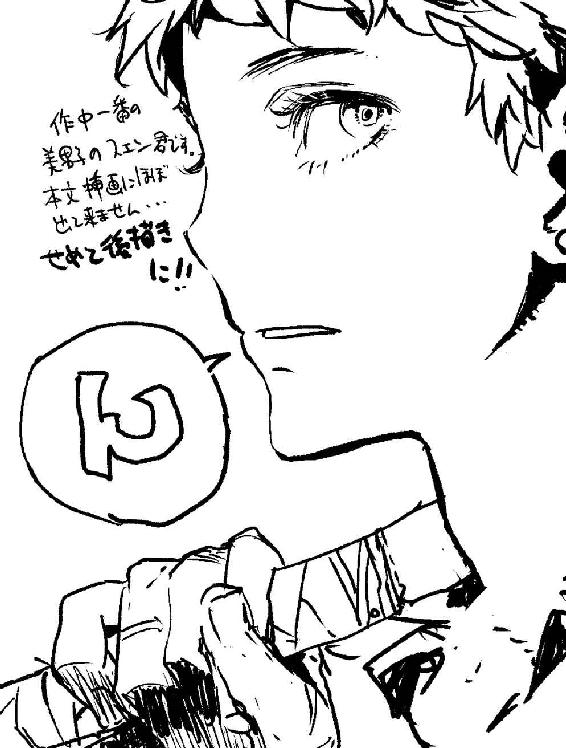 作中一番の
美男子のスエン君です。
本文挿画にほぼ
出て来ません・・・
せめて後描き
に!!